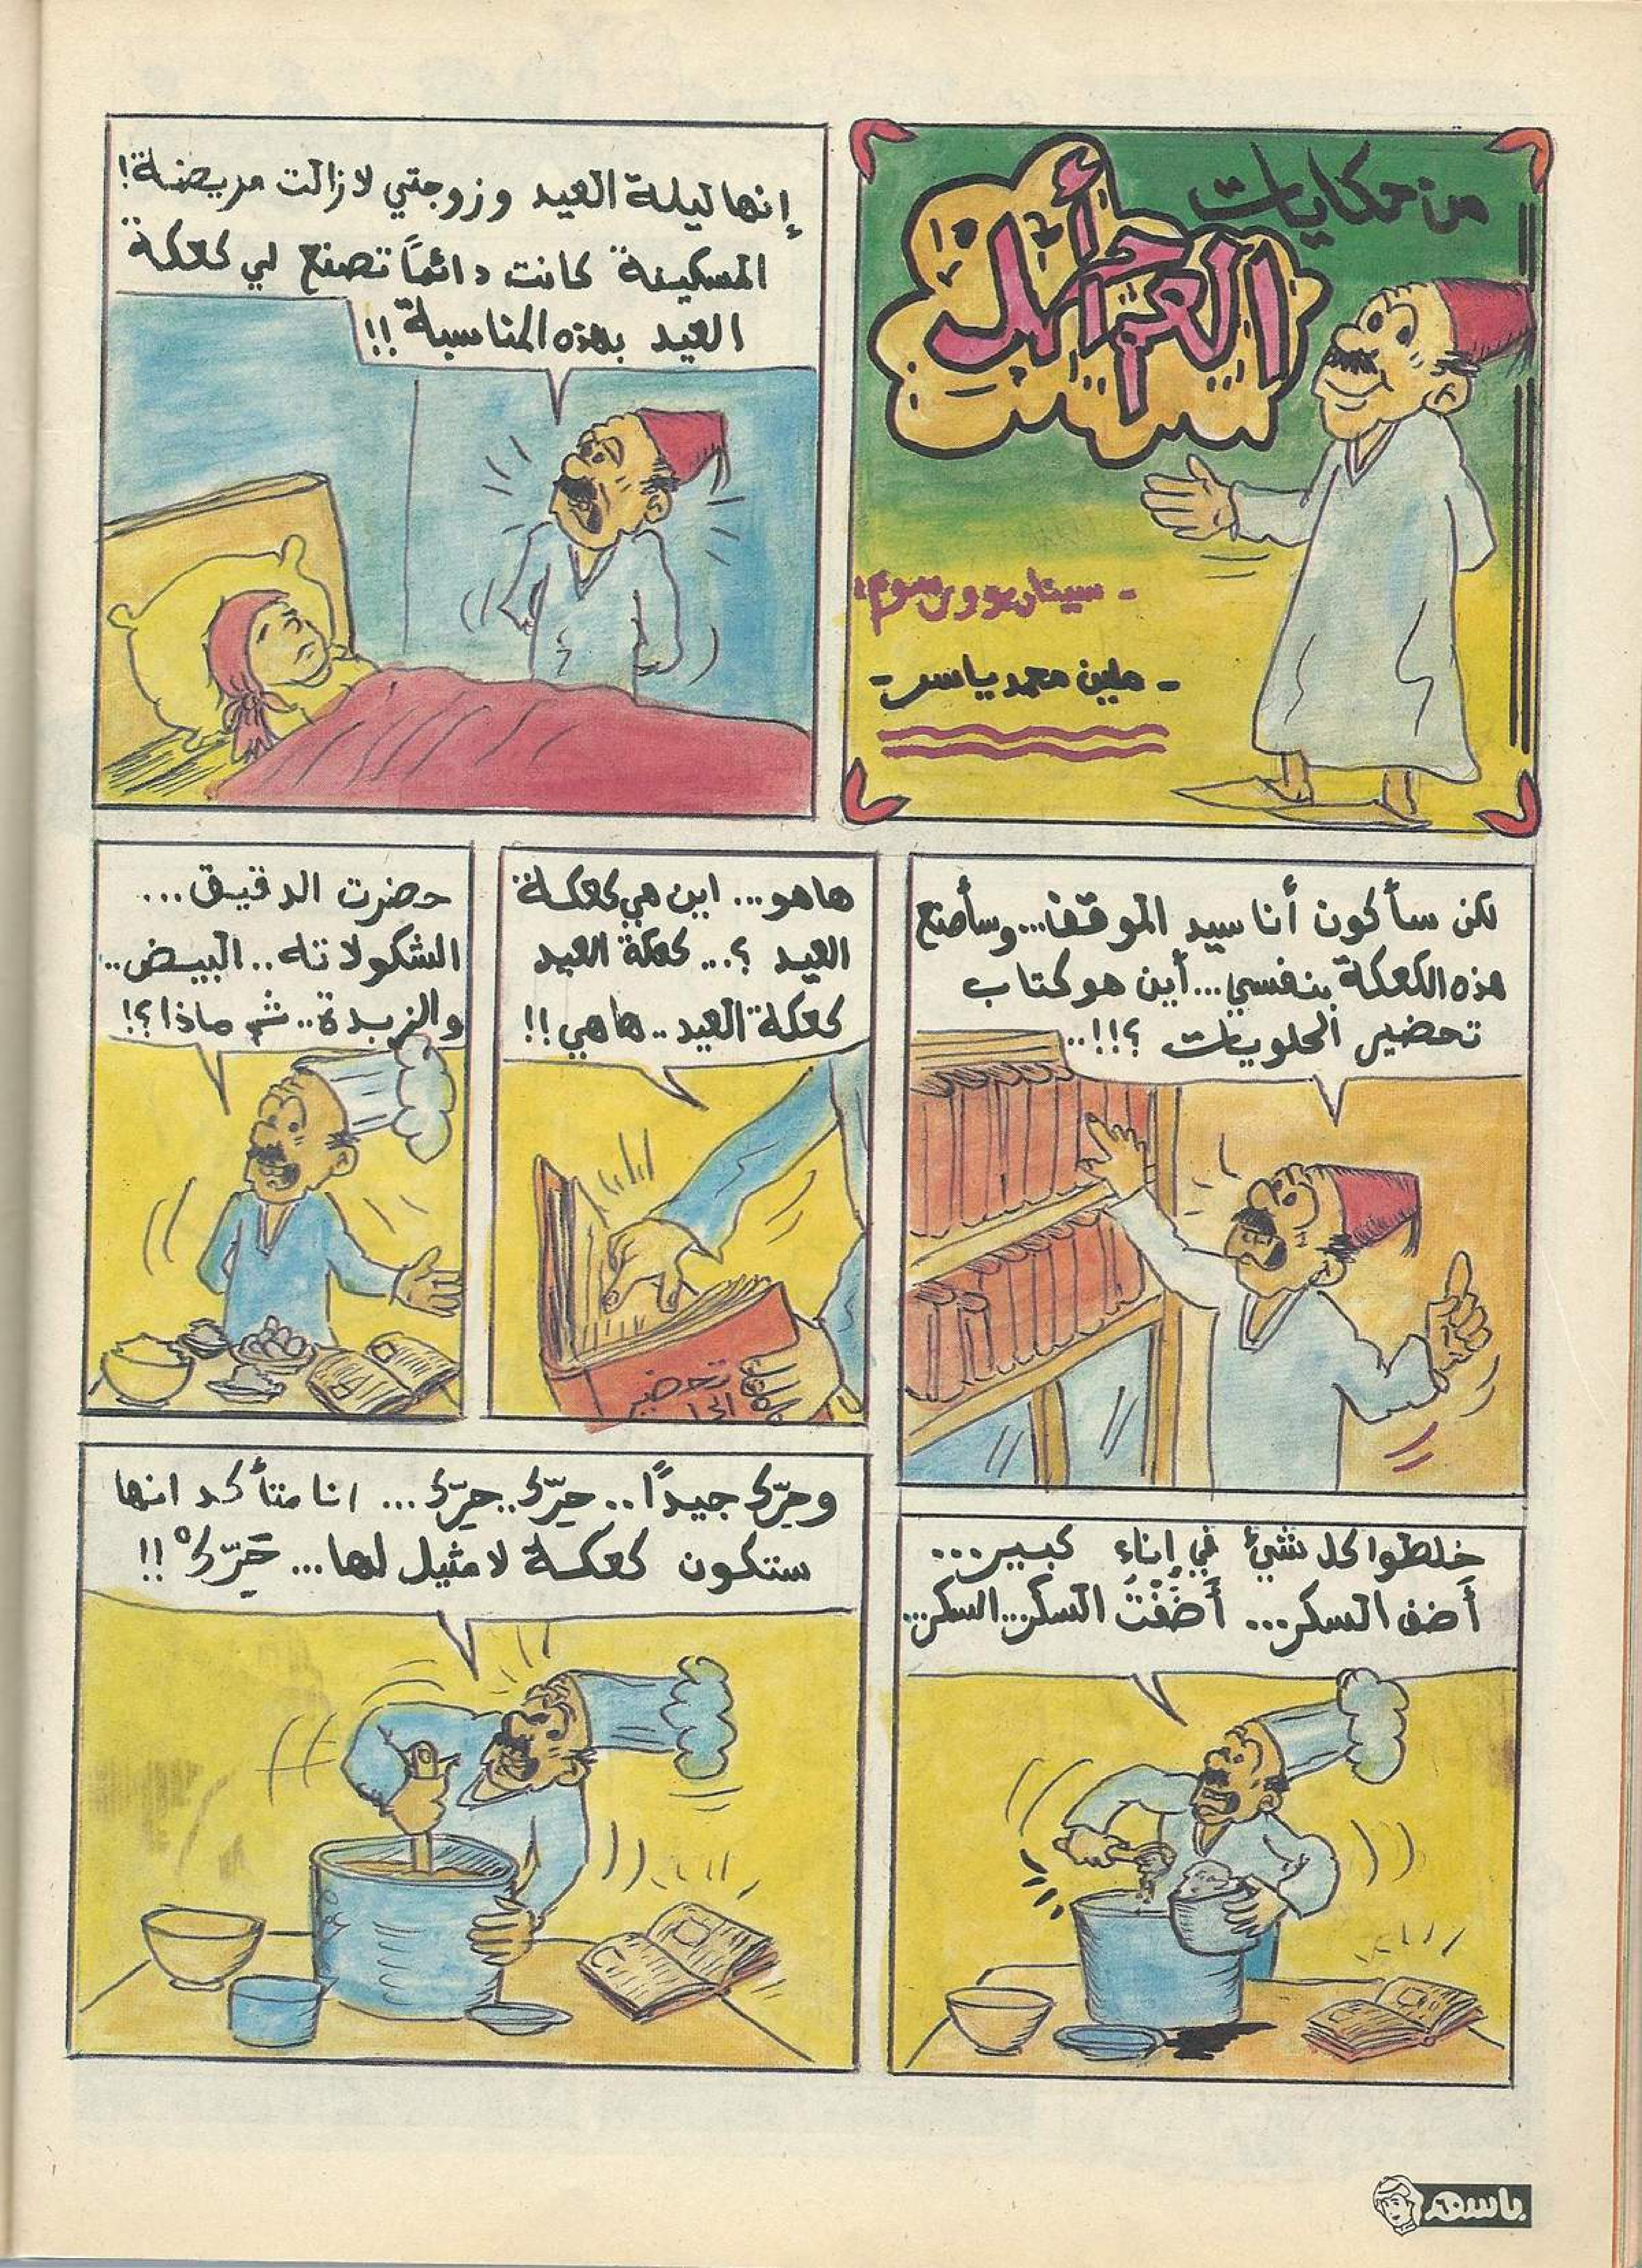 من حكايات
- سيناريو ورسوم:
- ملين محمد ياسر -
إنها ليلة العيد وزوجتي لازالت مريضة!
المسكينة كانت دائماً تصنع لي كعكة
العيد بهذه المناسبة!!
لكن سأكون أنا سيد الموقف...وسأصنع
هذه الكعكة بنفسي...أين هو كتاب
تحضير الحلويات ؟!!..
هاهو... اين هي كعكة
العيد ؟... كعكة العيد
كعكة العيد.. هاهي!!
تحضير
الحل
حضرت الدقيق...
الشكولاتة.. البيض..
والزبدة.. ثم ماذا؟!
خلطوا كل شيئ في إناء كبير...
أضف السكر... أَضَفْتُ السكر...السكر...
وحرّك جيداً.. حرّك..حرّك... انا متأكد انها
ستكون كعكة لا مثيل لها... حَرّكْ!!
باسم